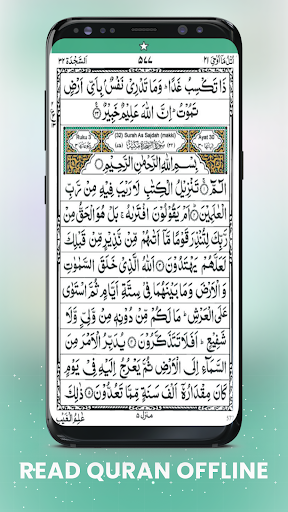 اُتْلُ مَآ اُوْحِيَ ٢١ ٥٧٧ اَلسَّجْدَة ٣٢
ذَا تَكْسِبُ غَدًا ؕ وَمَا تَدْرِيْ نَفْسٌۢ بِاَيِّ اَرْضٍ
تَمُوْتُ ؕ اِنَّ اللّٰهَ عَلِيْمٌ خَبِيْرٌ
Ruku 3 (32) Surah As Sajdah (makki) Ayat 30
بِسْمِ اللّٰهِ الرَّحْمٰنِ الرَّحِيْمِ
الٓمّٓ ۚ تَنْزِيْلُ الْكِتٰبِ لَا رَيْبَ فِيْهِ مِنْ رَّبِّ
الْعٰلَمِيْنَ ؕ اَمْ يَقُوْلُوْنَ افْتَرٰىهُ ۚ بَلْ هُوَ الْحَقُّ مِنْ
رَّبِّكَ لِتُنْذِرَ قَوْمًا مَّاۤ اَتٰىهُمْ مِّنْ نَّذِيْرٍ مِّنْ قَبْلِكَ
لَعَلَّهُمْ يَهْتَدُوْنَ اَللّٰهُ الَّذِيْ خَلَقَ السَّمٰوٰتِ
وَالْاَرْضَ وَمَا بَيْنَهُمَا فِيْ سِتَّةِ اَيَّامٍ ثُمَّ اسْتَوٰى
عَلَى الْعَرْشِ ؕ مَا لَكُمْ مِّنْ دُوْنِهٖ مِنْ وَّلِيٍّ وَّلَا
شَفِيْعٍ ؕ اَفَلَا تَتَذَكَّرُوْنَ يُدَبِّرُ الْاَمْرَ مِنَ
السَّمَآءِ اِلَى الْاَرْضِ ثُمَّ يَعْرُجُ اِلَيْهِ فِيْ يَوْمٍ
كَانَ مِقْدَارُهٗۤ اَلْفَ سَنَةٍ مِّمَّا تَعُدُّوْنَ ذٰلِكَ
منزل ٥ عٰلِمُ الْغَيْبِ
READ QURAN OFFLINE